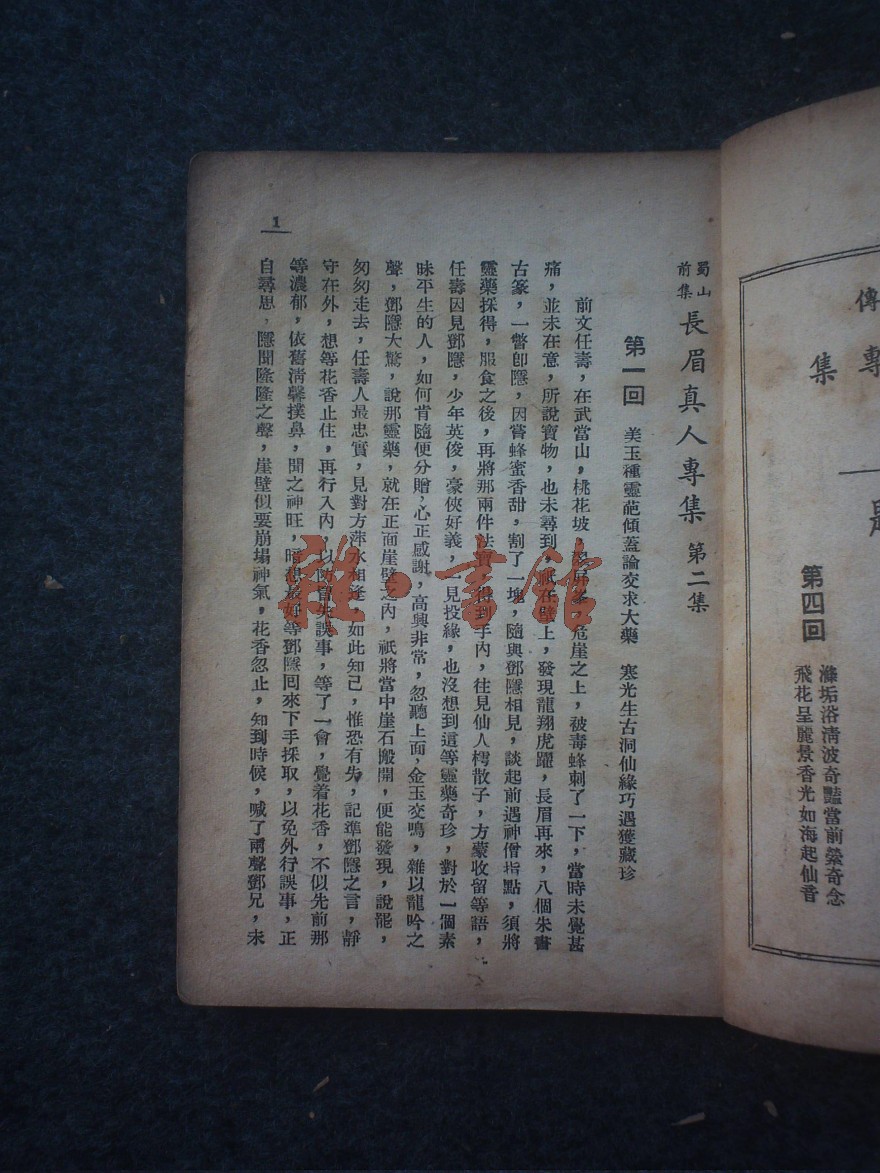 傳
專
集
第四回
滌垢浴清波奇豔當前縈奇念
飛花呈麗景香光如海起仙音
蜀山
前集
長眉真人專集 第二集
第一回 美玉種靈葩傾蓋論交求大藥 寒光生古洞仙緣巧遇獲藏珍
前文任壽，在武當山，桃花坡，危崖之上，被毒蜂刺了一下，當時未覺甚
痛，並未在意，所說寶物，也未尋到，祇在壁上，發現龍翔虎躍，長眉再來，八個朱書
古篆，一瞥卽隱，因嘗蜂蜜香甜，割了一塊，隨與鄧隱相見，談起前遇神僧指點，須將
靈藥採得，服食之後，再將那兩件法寶，得到手內，往見仙人樗散子，方蒙收留等語，
任壽因見鄧隱，少年英俊，豪俠好義，一見投緣，也沒想到這等靈藥奇珍，對於一個素
昧平生的人，如何肯隨便分贈，心正感謝，高興非常，忽聽上面，金玉交鳴，雜以龍吟之
聲，鄧隱大驚，說那靈藥，就在正面崖壁之內，祇將當中崖石搬開，便能發現，說罷，
匆匆走去，任壽人最忠實，見對方萍水相逢，如此知己，惟恐有失，記準鄧隱之言，靜
守在外，想等花香止住，再行入內，以防冒失誤事，等了一會，覺着花香，不似先前那
等濃郁，依舊清馨撲鼻，聞之神旺，暗想最好等鄧隱囘來下手採取，以免外行誤事，正
自尋思，隱聞隆隆之聲，崖壁似要崩塌神氣，花香忽止，知到時候，喊了兩聲鄧兄，未
1
雅·書館